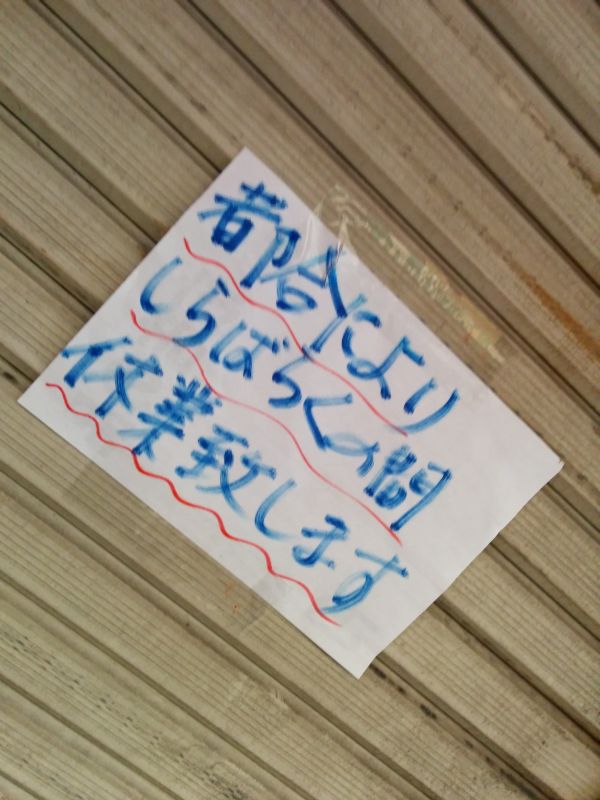 都合により
しらばらくの間
休業致します